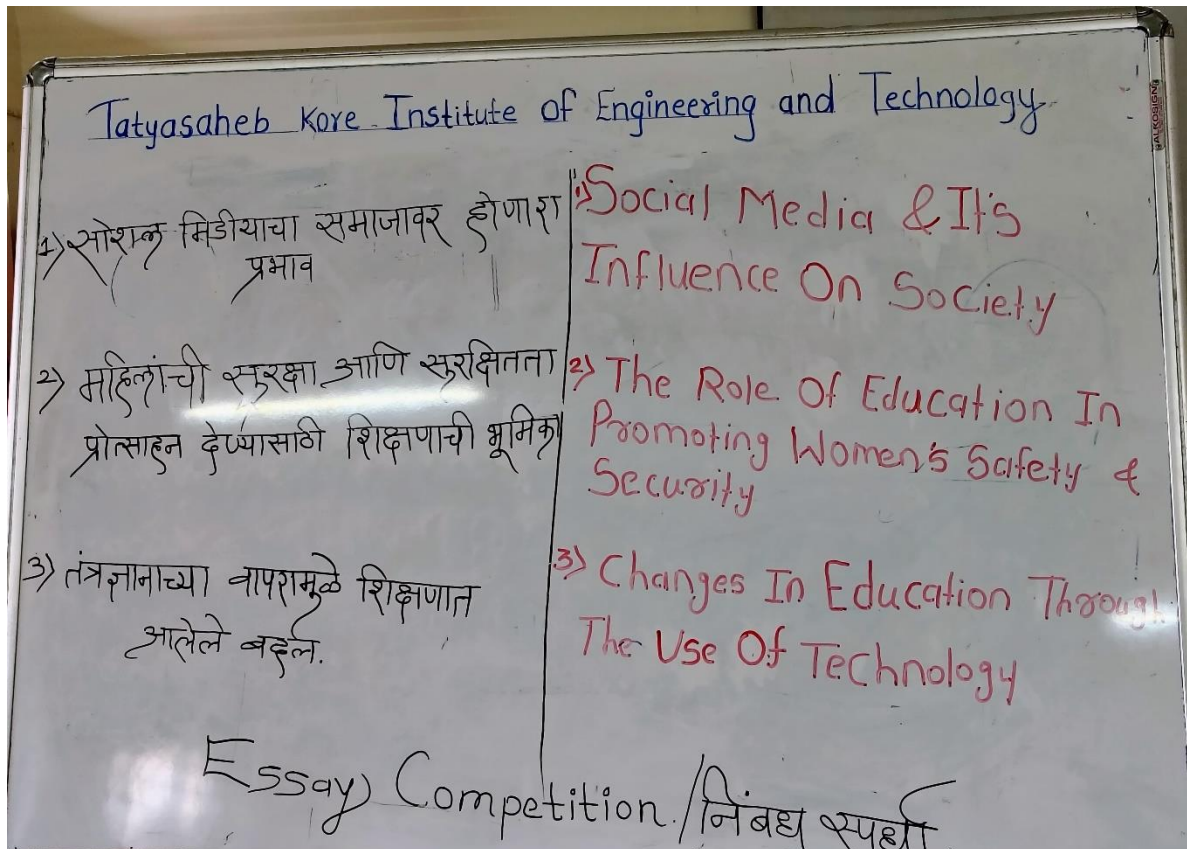 Tatyasaheb Kore Institute of Engineering and Technology
1) सोशल मिडीयाचा समाजावर होणारा
प्रभाव
2) महिलांची सुरक्षा आणि सुरक्षितता
प्रोत्साहन देण्यासाठी शिक्षणाची भूमिका
3) तंत्रज्ञानाच्या वापरामुळे शिक्षणात
आलेले बदल.
1) Social Media & It's
Influence On Society
2) The Role Of Education In
Promoting Women's Safety &
Security
3) Changes In Education Through
The Use Of Technology
Essay Competition / निबंध स्पर्धा
ALKOSIGN